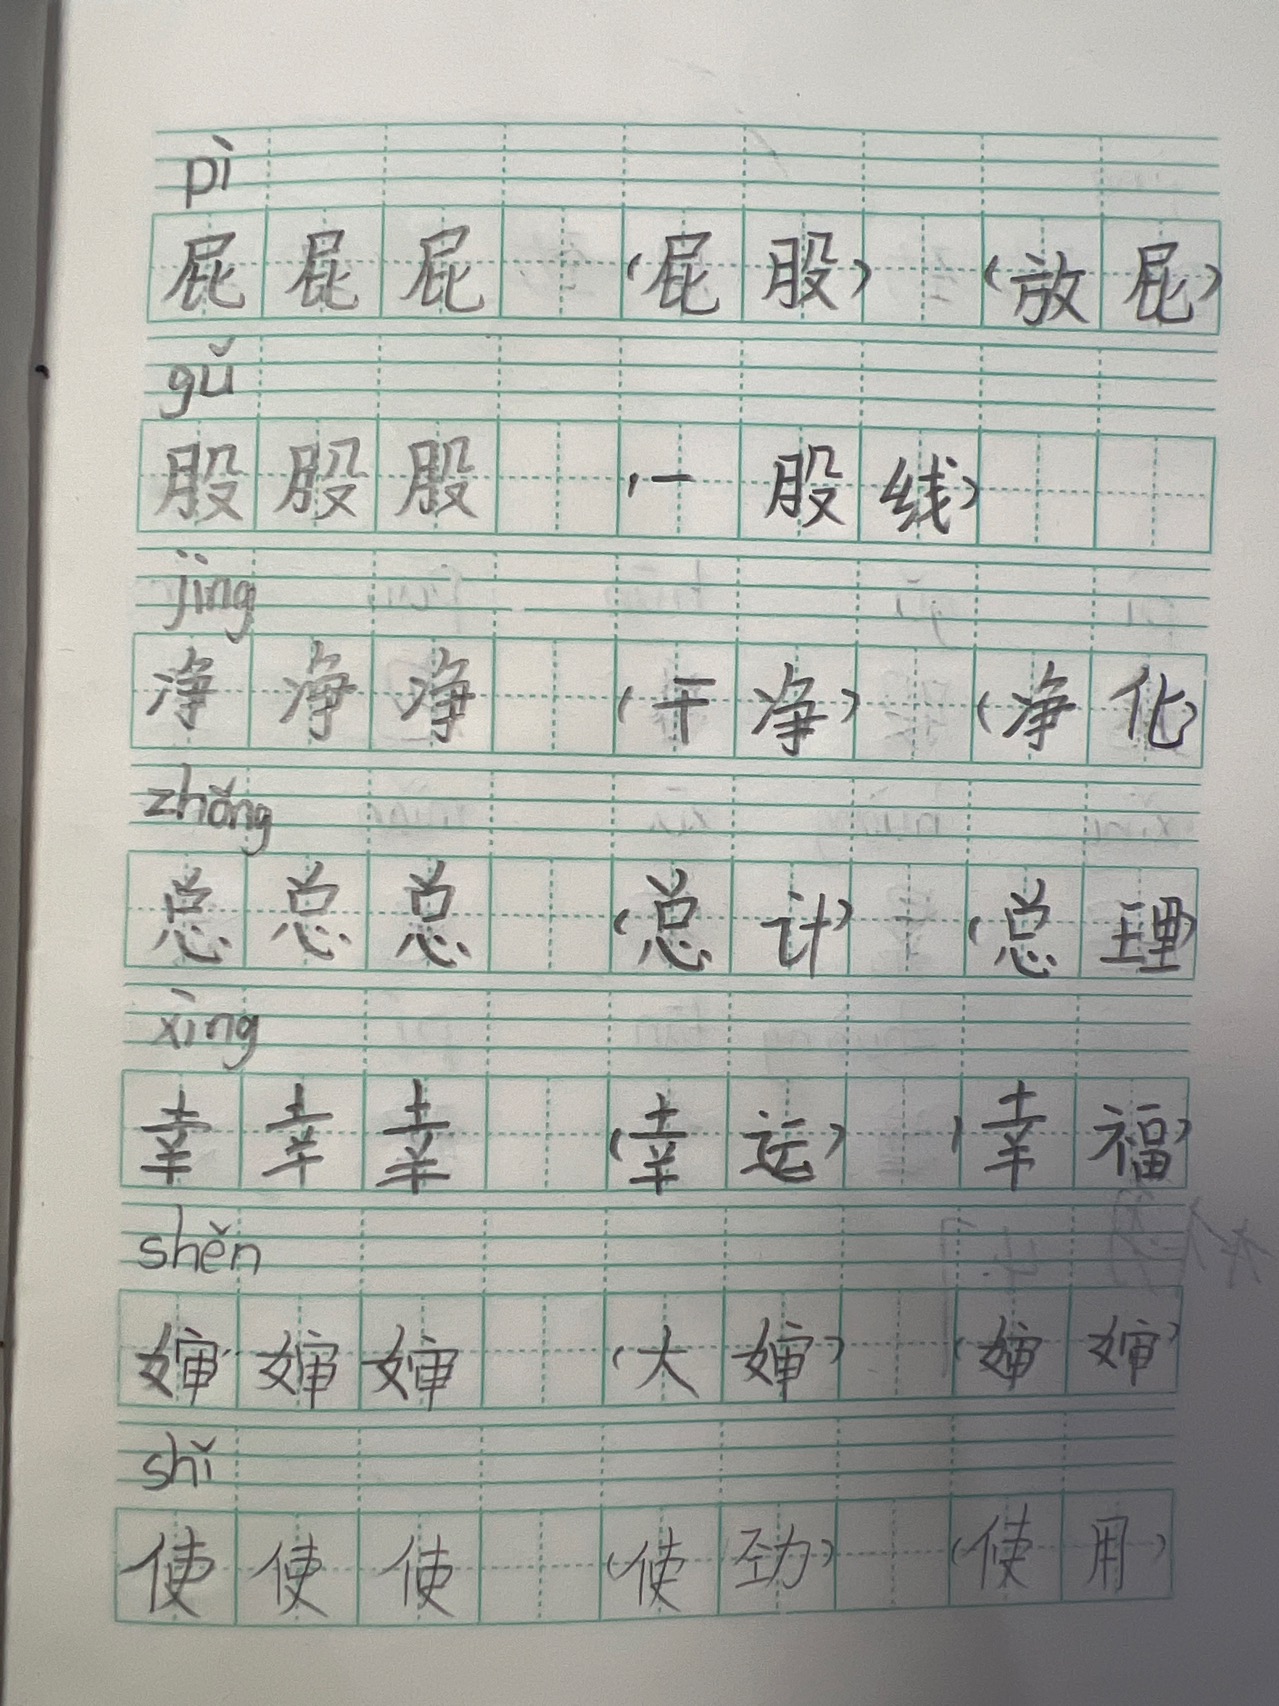 pì
屁 屁 屁 (屁 股) (放 屁)
gǔ
股 股 股 (一 股 线)
jìng
净 净 净 (干 净) (净 化)
zhǒng
总 总 总 (总 计) (总 理)
xìng
幸 幸 幸 (幸 运) (幸 福)
shěn
婶 婶 婶 (大 婶) (婶 婶)
shǐ
使 使 使 (使 劲) (使 用)